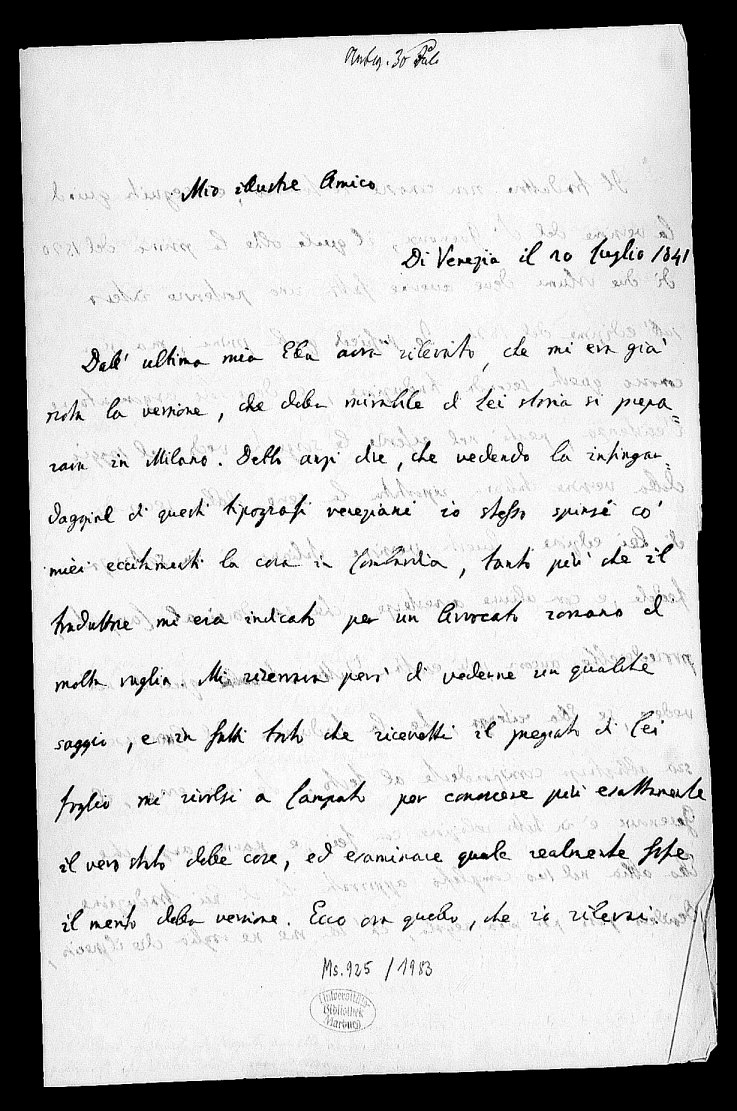 Mio illustre Amico
Di Venezia il 20 luglio 1841
Dall' ultima mia Ella avrà rilevato, che mi era già
nota la versione, che della mirabile di Lei storia si prepa=
rava in Milano. Debbo anzi dire, che vedendo la infingar=
daggine di questi tipografi veneziani io stesso spinsi co'
miei eccitamenti la cosa in Lombardia, tanto più che il
traduttore mi era indicato per un Avvocato romano di
molta vaglia. Mi riservava però di vederne un qualche
saggio, e in fatti tosto che ricevetti il pregiato di Lei
foglio mi rivolsi a per conoscere più esattamente
il vero stato delle cose, ed esaminare quale realmente fosse
il merito della versione. Ecco ora quello, che io rilevai
Ms. 925 / 1983
Universitäts
Bibliothek
Marburg